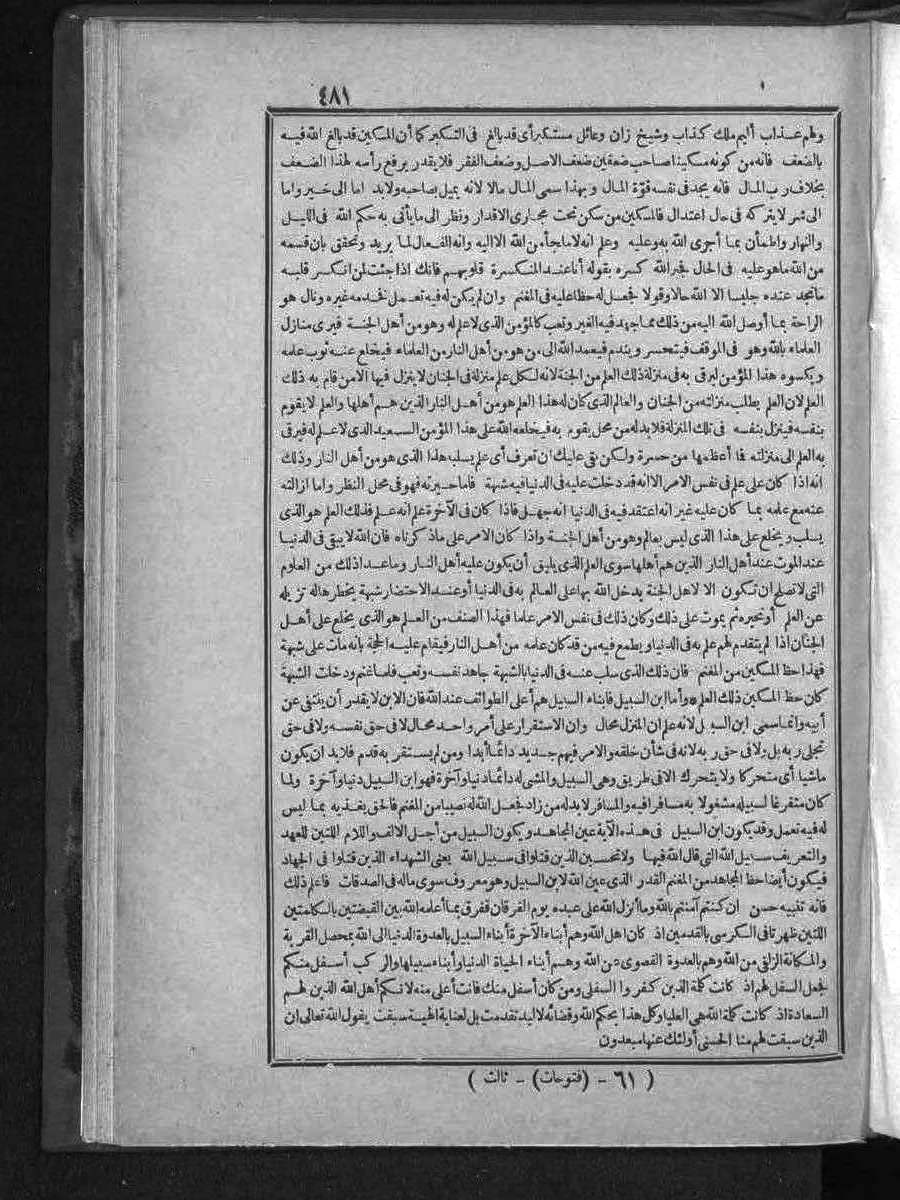 ٤٨١
ولهم عذاب أليم ملك كذاب وشيخ زان وعائل مستكبر أى قد بالغ فى التكبر كما أن المسكين قد بالغ الله فيه
بالضعف فانه من كونه مسكينا صاحب ضعفين ضعف الاصل وضعف الفقر فلا يقدر يرفع رأسه لهذا الضعف
بخلاف رب المال فانه يجد فى نفسه قوّة المال وبهذا سمى المال مالا لانه يميل بصاحبه ولا بد اما الى خير واما
الى شر لا يتركه فى حال اعتدال فالمسكين من سكن تحت مجارى الاقدار ونظر الى ما يأتى به حكم الله فى الليل
والنهار واطمأن بما أجرى الله به وعليه وعلم انه لا ملجأ من الله الا اليه وانه الفعال لما يريد وتحقق بان قسمه
من الله ما هو عليه فى الحال فجبر الله كسره بقوله أنا عند المنكسرة قلوبهم فانك اذا جئت لمن انكسر قلبه
ما تجد عنده جليسا الا الله حالا وقولا فجعل له حظا عليه فى المغنم وان لم يكن له فيه تعمل نخدمه غيره ونال هو
الراحة بما أوصل الله اليه من ذلك مما جهد فيه الغير وتعب كالمؤمن الذى لا علم له وهو من أهل الجنة فيرى منازل
العلماء بالله وهو فى الموقف فيتحسر ويندم فيعمد الله الى من هو من أهل النار من العلماء فيخلع عنه ثوب علمه
ويكسوه هذا المؤمن ليرقى به فى منزلة ذلك العلم من الجنة لانه لكل علم منزلة فى الجنان لا ينزل فيها الا من قام به ذلك
العلم لان العلم يطلب منزلته من الجنان والعالم الذى كان له هذا العلم هو من أهل النار الذين هم أهلها والعلم لا يقوم
بنفسه فينزل بنفسه فى تلك المنزلة فلا بد له من محل يقوم به فيخلعه الله على هذا المؤمن السعيد الذى لا علم له فيرقى
به العلم الى منزلته فما أعظمها من حسرة ولكن بقى عليك ان تعرف أى علم يسلبه هذا الذى هو من أهل النار وذلك
انه اذا كان على علم فى نفس الامر الا انه قد دخلت عليه فى الدنيا فيه شبهة فاما حيرته فهو فى محل النظر واما ازالته
عنه مع علمه بما كان عليه غير انه اعتقد فيه فى الدنيا انه جهل فاذا كان فى الآخرة علم انه علم فذلك العلم هو الذى
يسلب ويخلع على هذا الذى ليس بعالم وهو من أهل الجنة واذا كان الامر على ما ذكرناه فان الله لا يبقى فى الدنيا
عند الموت عند أهل النار الذين هم أهلها سوى العلم الذى يليق أن يكون عليه أهل النار وما عدا ذلك من العلوم
التى لا تصلح ان تكون الا لاهل الجنة يدخل الله بها على العالم به فى الدنيا أو عند الاحتضار شبهة يخطرها له تزيله
عن العلم أو تحيره ثم يموت على ذلك وكان ذلك فى نفس الامر علما فهذا الصنف من العلم هو الذى يخلع على أهل
الجنان اذا لم يتقدم لهم علم به فى الدنيا ويطمع فيه من قد كان علمه من أهل النار فيقام عليه الحجة بانه مات على شبهة
فهذا حظ المسكين من المغنم فان ذلك الذى سلب عنه فى الدنيا بالشبهة جاهد نفسه وتعب فلما غنم ودخلت الشبهة
كان حظ المسكين ذلك العلم * وأما ابن السبيل فابناء السبيل هم أعلى الطوائف عند الله فان الابن لا يقدر أن ينتفى عن
أبيه وانما سمى ابن السبيل لانه علم ان المنزل محال وان الاستقرار على أمر واحد محال لا فى حق نفسه ولا فى حق
تجلى ربه بل ولا فى حق ربه لانه فى شأن خلقه والامر فيهم جديد دائما أبدا ومن لم يستقر به قدم فلا بد ان يكون
ماشيا أى متحركا ولا يتحرك الا فى طريق وهى السبيل والمشى له دائما دنيا وآخرة فهو ابن السبيل دنيا وآخرة ولما
كان متفرغا لسبيله مشغولا به مسافرا فيه والمسافر لا بد له من زاد فجعل الله له نصيبا من المغنم فالحق يغذيه بما ليس
له فيه تعمل وقد يكون ابن السبيل فى هذه الآية عين المجاهد ويكون السبيل من أجل الالف واللام اللتين للعهد
والتعريف سبيل الله التى قال الله فيها ولا تحسبن الذين قتلوا فى سبيل الله يعنى الشهداء الذين قتلوا فى الجهاد
فيكون أيضا حظ المجاهد من المغنم القدر الذى عين الله لابن السبيل وهو معروف سوى ماله فى الصدقات فاعلم ذلك
فانه تنبيه حسن ان كنتم آمنتم بالله وما أنزل الله على عبده يوم الفرقان ففرق بما أعلمه الله بين القبضتين بالكلمتين
اللتين ظهرتا فى الكرسى بالقدمين اذ كان أهل الله وهم أبناء الآخرة أبناء السبيل بالعدوة الدنيا الى الله بمحصل القربة
والمكانة الزلفى من الله وهم بالعدوة القصوى عن الله وهم أبناء الحياة الدنيا وأبناء سبيلها والركب أسفل منكم
فجعل السفل لهم اذ كانت كلمة الذين كفروا السفلى ومن كان أسفل منك فانت أعلى منه لانكم أهل الله الذين لهم
السعادة اذ كانت كلمة الله هى العليا وكل هذا بحكم الله وقضائه لا ليد تقدمت بل لعناية الهية سبقت يقول الله تعالى ان
الذين سبقت لهم منا الحسنى أولئك عنها مبعدون
( ٦١ - (فتوحات) - ثالث )